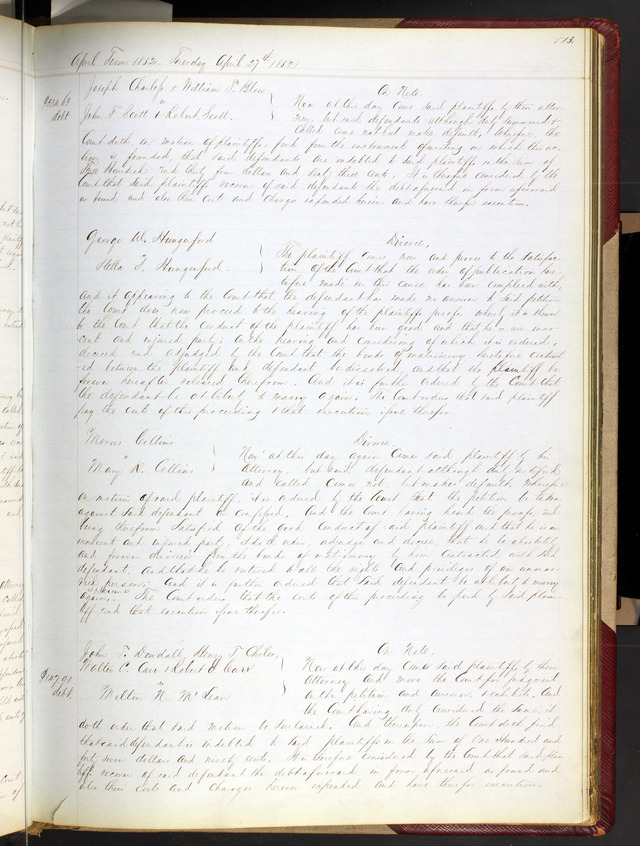 April Term 1852. Tuesday April 27th 1852
Joseph Charless & William S. Blow
vs
John F. Scott & Robert Scott.
debt
On Note
Now at this day come said plaintiffs by their attor-
ney, but said defendants although duly summoned &
called come not but make default, wherefore, the
Court doth, on motion of plaintiffs, find from the instrument of writing on which the ac-
tion is founded, that said defendants are indebted to said plaintiffs in the sum of
Hundred and thirty four dollars and sixty three cents. It is therefore considered by the
Court that said plaintiffs recover of said defendants the debt aforesaid in form aforesaid
as found and also their costs and charges expended herein and have therefor execution.
George W. Hungerford
vs
Stella F. Hungerford.
Divorce.
The plaintiff comes now and proves to the satisfac-
tion of the Court that the order of publication here-
tofore made in this cause has been complied with,
and it appearing to the Court that the defendant has made no answer to said petition
the Court does now proceed to the hearing of the plaintiffs proofs, whereby it is shown
to the Court that the conduct of the plaintiff has been good and that he is an inno-
cent and injured party; on the hearing and considering of which it is ordered,
decreed and adjudged by the Court that the bonds of matrimony heretofore contract-
ed between the plaintiff and defendant be dissolved, and that the plaintiff be
forever hereafter released therefrom. And it is further ordered by the Court that
the defendant be not at liberty to marry again. The Court orders that said plaintiff
pay the costs of this proceeding & that execution issue therefor.
Collins
vs
Mary K. Collins
Divorce.
Now at this day again comes said plaintiff by his
Attorney, but said defendant although duly notified
and called comes not, but makes default. Wherefore
on motion of said plaintiff, it is ordered by the Court that the petition be taken
against said defendant as confessed. And the Court having heard the proofs and
being therefrom satisfied of the good conduct of said plaintiff and that he is an
innocent and injured party, doth order, adjudge and decree, that he be absolutely
and forever divorced from the bonds of matrimony by him contracted with said
defendant, and that he be restored to all the rights and privileges of an unmar-
ried person; and it is further ordered that said defendant be not at liberty to marry
again. The Court orders that the costs of this proceeding be paid by said plain-
tiff and that execution issue therefor.
John F. Dowdall, Henry T.
Walter C. Carr & Robert S. Carr
vs
Milton N. McLean
$147.90
debt.
On Note.
Now at this day come said plaintiffs by their
Attorney and move the Court for judgment
on the petition and answer exhibited, and
the Court having duly considered the same, it
doth order that said motion be sustained. And thereupon the Court doth find
that said defendant is indebted to said plaintiffs in the sum of One Hundred and
forty seven dollars and ninety cents. It is therefore considered by the Court that said plain-
tiffs recover of said defendant the debt aforesaid in form aforesaid as found and
also their costs and charges herein expended and have therefor execution.